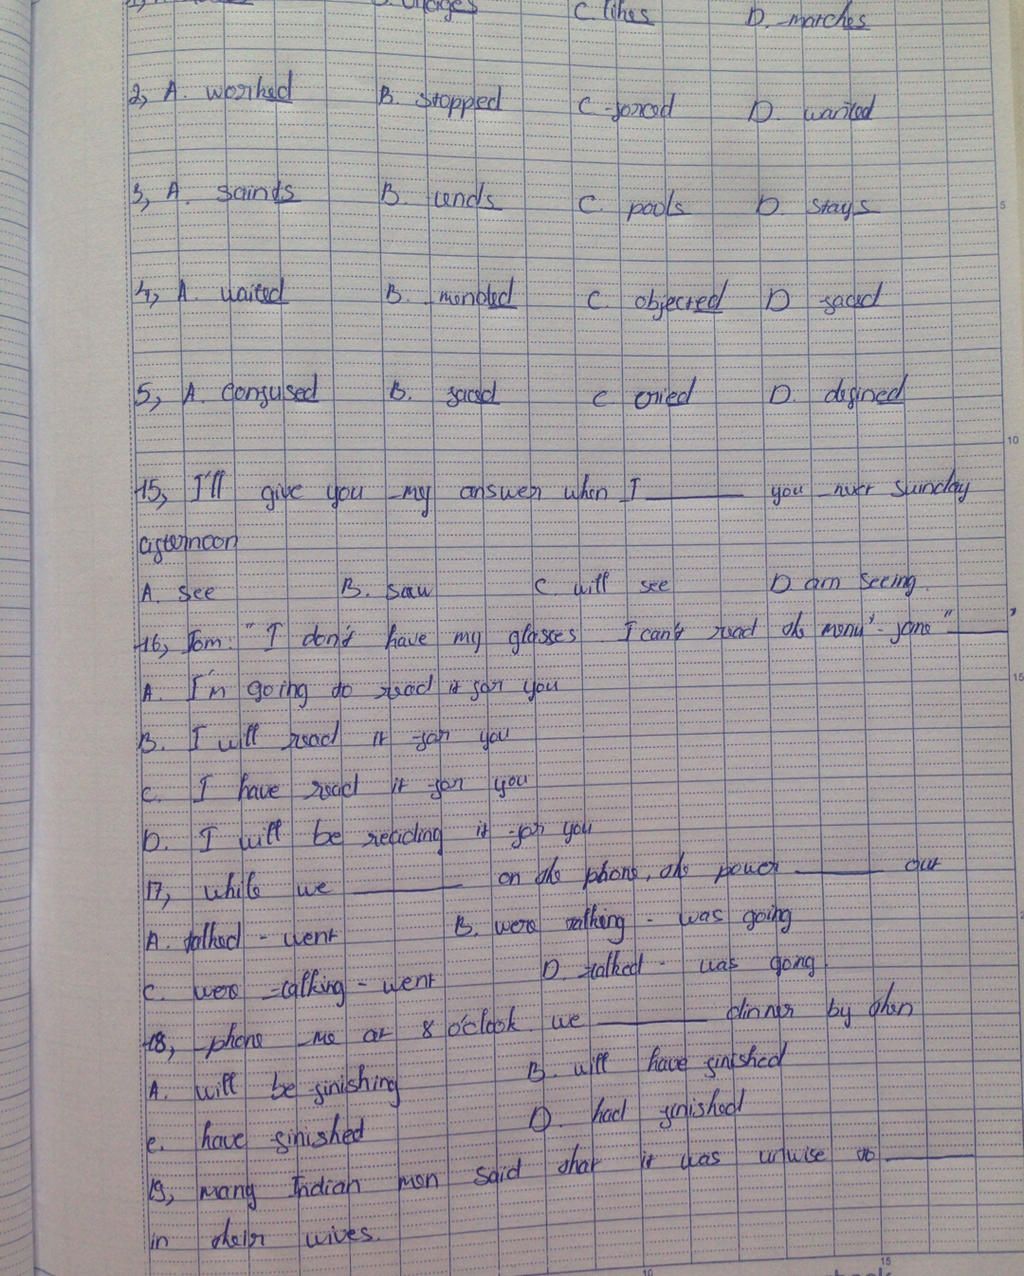 C. likes D. marches
2, A. worked B. stopped C. forced D. wanted
3, A. sainds B. lends C. pools D. stays
4, A. waited B. mended C. objected D. faced
5, A. confused B. faced C. cried D. defined
15, I'll give you my answer when I ______ you next Sunday
afternoon
A. see B. saw C. will see D. am seeing
16, Tom: "I don't have my glasses I can't read the menu" - jane "______"
A. I'm going to read it for you
B. I will read it for you
C. I have read it for you
D. I will be reading it for you
17, while we ______ on the phone, the power ______ out
A. talked - went B. were talking - was going
C. were talking - went D. talked - was gong
18, phone me at 8 o'clock we ______ dinner by then
A. will be finishing B. will have finished
C. have finished D. had finished
19, many Indian men said that it was unwise to ______
in their wives.